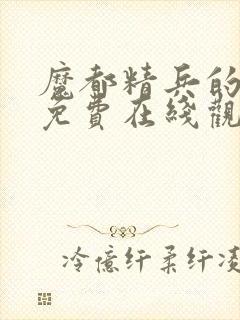 魔都精兵的
免費在綫觀
冷億纤柔纤凌